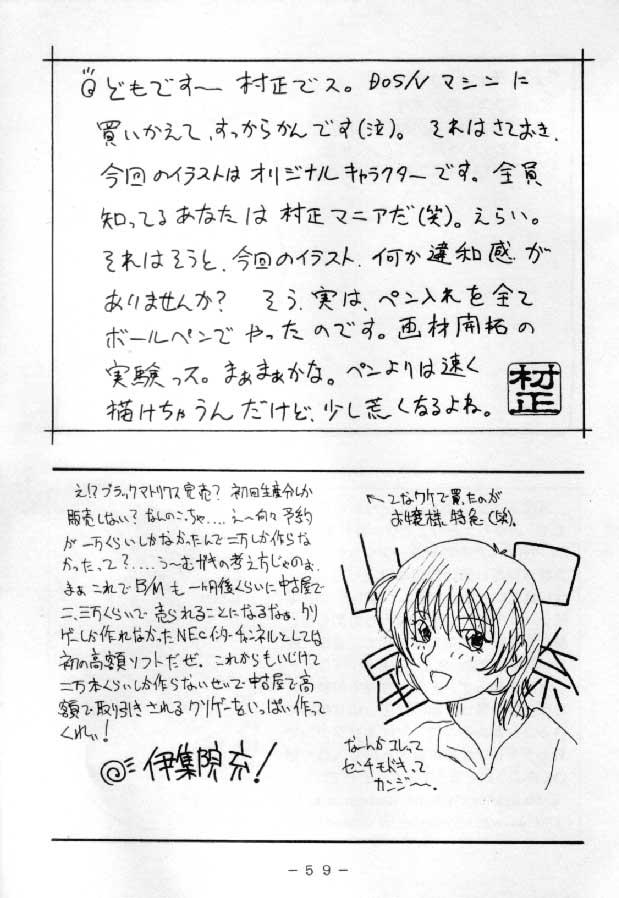 どもです〜 村正でス。DOS/V マシンに
買いかえて、すっからかんです(泣)。それはさておき、
今回のイラストはオリジナルキャラクターです。全員
知ってるあなたは村正マニアだ(笑)。えらい。
それはそうと、今回のイラスト、何か違和感が
ありませんか? そう、実は、ペン入れを全て
ボールペンでやったのです。画材開拓の
実験っス。まぁまぁかな。ペンよりは速く
描けちゃうんだけど、少し荒くなるよね。
村正
え!?ブラックマトリクス完売? 初回生産分しか
販売しない? なんのこっちゃ....え〜何々予約
が一万くらいしかなかったんで二万しか作らな
かったって?....う〜むがきの考え方じゃのぉ、
まぁこれでB/Mも一ヶ月後くらいに中古屋で
二、三万くらいで売られることになるなぁ、クソ
ゲーしか作れなかったNECインターチャンネルとしては
初の高額ソフトだぜ。これからもいじけて
二万本くらいしか作らないせいで中古屋で高
額で取引きされるクソゲーをいっぱい作って
くれい!
伊集院充!
←こなワケで買ったのが
お嬢様特急(笑)。
なーんかコレって
センチモドキって
カンジ〜〜。
−59−